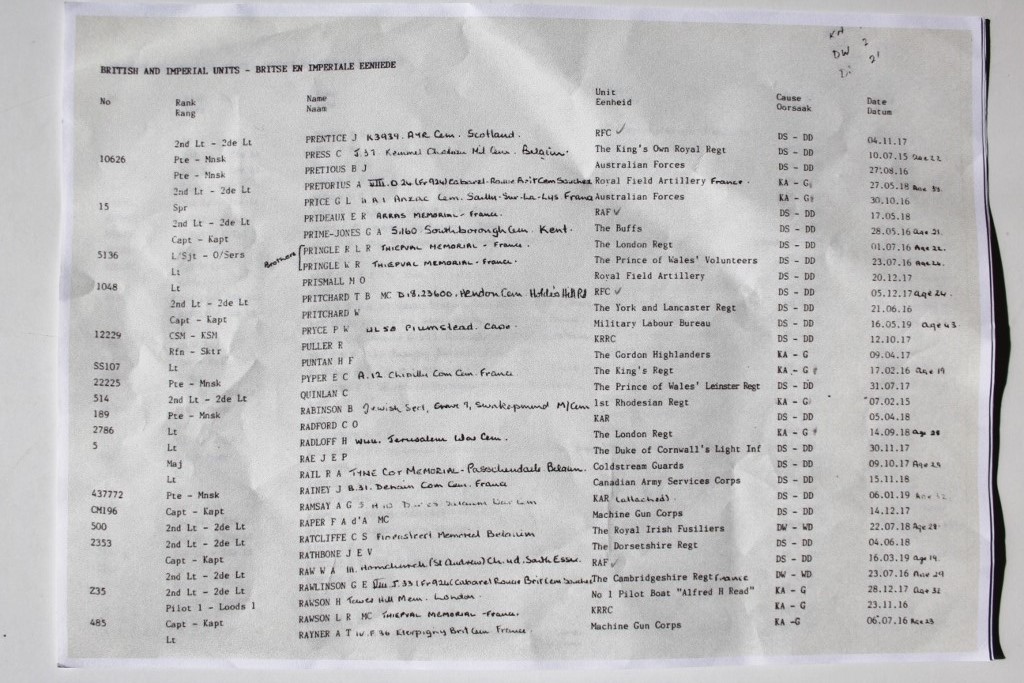 KH 2
DW 2
21
BRITISH AND IMPERIAL UNITS - BRITSE EN IMPERIALE EENHEDE
No Rank Name Unit Cause Date
Rang Naam Eenheid Oorsaak Datum
2nd Lt - 2de Lt PRENTICE J K3939. AYR Cem. Scotland. RFC ✓ DS - DD 04.11.17
10626 Pte - Mnsk PRESS C J.37 Kemmel Chateau Mil Cem. Belgium. The King's Own Royal Regt DS - DD 10.07.15 Age 22
Pte - Mnsk PRETIOUS B J Australian Forces DS - DD 27.08.16
2nd Lt - 2de Lt PRETORIUS A VIII.O.24 (Fr 924) Cabaret-Rouge Brit Cem Souchez Royal Field Artillery France. KA - G 27.05.18
15 Spr PRICE G L Anzac Cem. Sailly-Sur-La-Lys France Australian Forces KA - G 30.10.16
2nd Lt - 2de Lt PRIDEAUX E R ARRAS MEMORIAL - France. RAF ✓ DS - DD 17.05.18
Capt - Kapt PRIME-JONES G A 5.160 Southborough Cem. Kent. The Buffs DS - DD 28.05.16 Age 21.
5136 L/Sjt - O/Sers Brothers PRINGLE R L R THIEPVAL MEMORIAL - France. The London Regt DS - DD 01.07.16 Age 22.
Lt PRINGLE W R THIEPVAL MEMORIAL - France. The Prince of Wales' Volunteers DS - DD 23.07.16
1048 PRISMALL M O Royal Field Artillery DS - DD 20.12.17
2nd Lt - 2de Lt PRITCHARD T B MC D18.23600. Hendon Cem. Holders Hill Rd RFC ✓ DS - DD 05.12.17 age 24.
Capt - Kapt PRITCHARD W The York and Lancaster Regt DS - DD 21.06.16
12229 CSM - KSM PRYCE P W Plumstead. Cape. Military Labour Bureau DS - DD 16.05.19 age 43
Rfn - Sktr PULLER R KRRC DS - DD 12.10.17
SS107 Lt PUNTAN H F The Gordon Highlanders KA - G 09.04.17
22225 Pte - Mnsk PYPER E C A.12 Chipilly Com Cem. France The King's Regt KA - G 17.02.16 age 19
514 2nd Lt - 2de Lt QUINLAN C The Prince of Wales' Leinster Regt DS - DD 31.07.17
189 Pte - Mnsk RABINSON B Jewish Sect, Grave 9, Swakopmund M/Cem 1st Rhodesian Regt KA - G 07.02.15
2786 Lt RADFORD C O KAR DS - DD 05.04.18
5 Lt RADLOFF H Jerusalem War Cem. The London Regt KA - G 14.09.18
Maj RAE J E P The Duke of Cornwall's Light Inf DS - DD 30.11.17
Lt RAIL R A TYNE COT MEMORIAL - Passchendaele Belgium. Coldstream Guards DS - DD 09.10.17
437772 Pte - Mnsk RAINEY J B.31. Denain Com Cem. France Canadian Army Services Corps DS - DD 15.11.18
CM196 Capt - Kapt RAMSAY A G S KAR (attached). DS - DD 06.01.19
500 2nd Lt - 2de Lt RAPER F A d'A MC Machine Gun Corps DS - DD 14.12.17
2353 2nd Lt - 2de Lt RATCLIFFE C S Ploegsteert Memorial Belgium The Royal Irish Fusiliers DW - WD 22.07.18
Capt - Kapt RATHBONE J E V The Dorsetshire Regt DS - DD 04.06.18
2nd Lt - 2de Lt RAW W A Hornchurch (St Andrew) Ch. yd. South Essex. RAF ✓ DS - DD 16.03.19 age 19.
Z35 Pilot 1 - Loods 1 RAWLINSON G E VIII.J.33 (Fr 924) Cabaret Rouge Brit Cem Souchez The Cambridgeshire Regt France DW - WD 23.07.16 Age 29
Capt - Kapt RAWSON H Tower Hill Mem. London. No 1 Pilot Boat "Alfred H Read" KA - G 28.12.17
485 Lt RAWSON L R MC THIEPVAL MEMORIAL - France. KRRC KA - G 23.11.16
RAYNER A T IV.F.36 Klerpigny Brit Cem France. Machine Gun Corps KA -G 06.07.16 Age 23